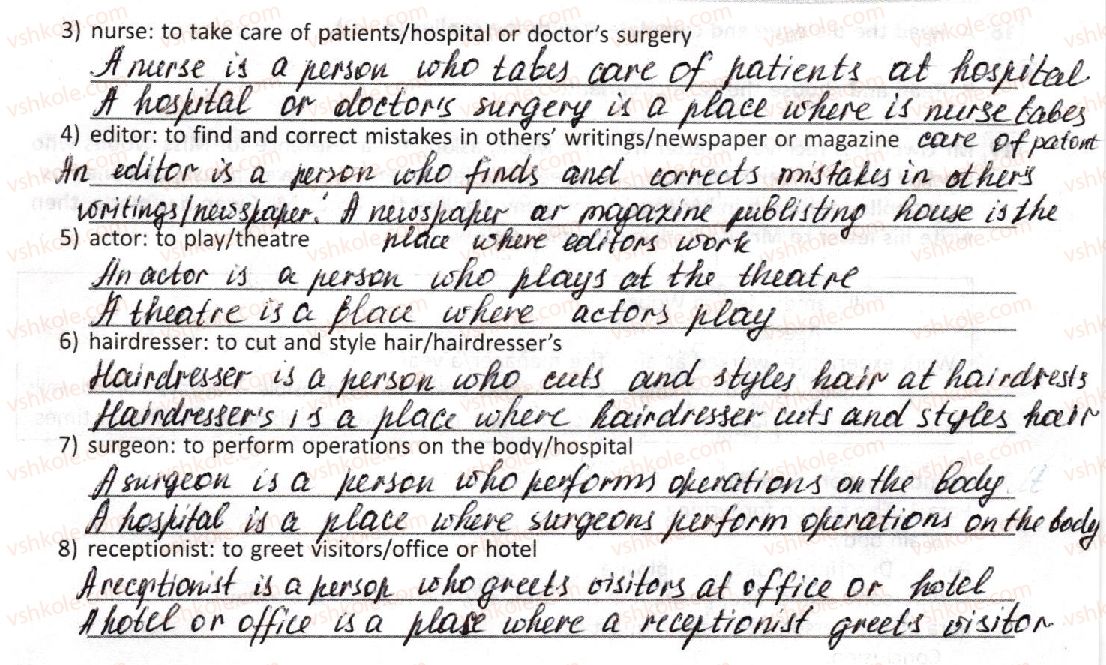 3) nurse: to take care of patients/hospital or doctor's surgery
A nurse is a person who takes care of patients at hospital
A hospital or doctor's surgery is a place where is nurse takes
4) editor: to find and correct mistakes in others' writings/newspaper or magazine care of patent
An editor is a person who finds and corrects mistakes in others
writings/newspaper. A newspaper or magazine publisting house is the
5) actor: to play/theatre place where editors work
An actor is a person who plays at the theatre
A theatre is a place where actors play
6) hairdresser: to cut and style hair/hairdresser's
Hairdresser is a person who cuts and styles hair at hairdress's
Hairdresser's is a place where hairdresser cuts and styles hair
7) surgeon: to perform operations on the body/hospital
A surgeon is a person who performs operations on the body.
A hospital is a place where surgeons perform operations on the body
8) receptionist: to greet visitors/office or hotel
A receptionist is a person who greets visitors at office or hotel
A hotel or office is a plase where a receptionist greets visitor
vshkole.com